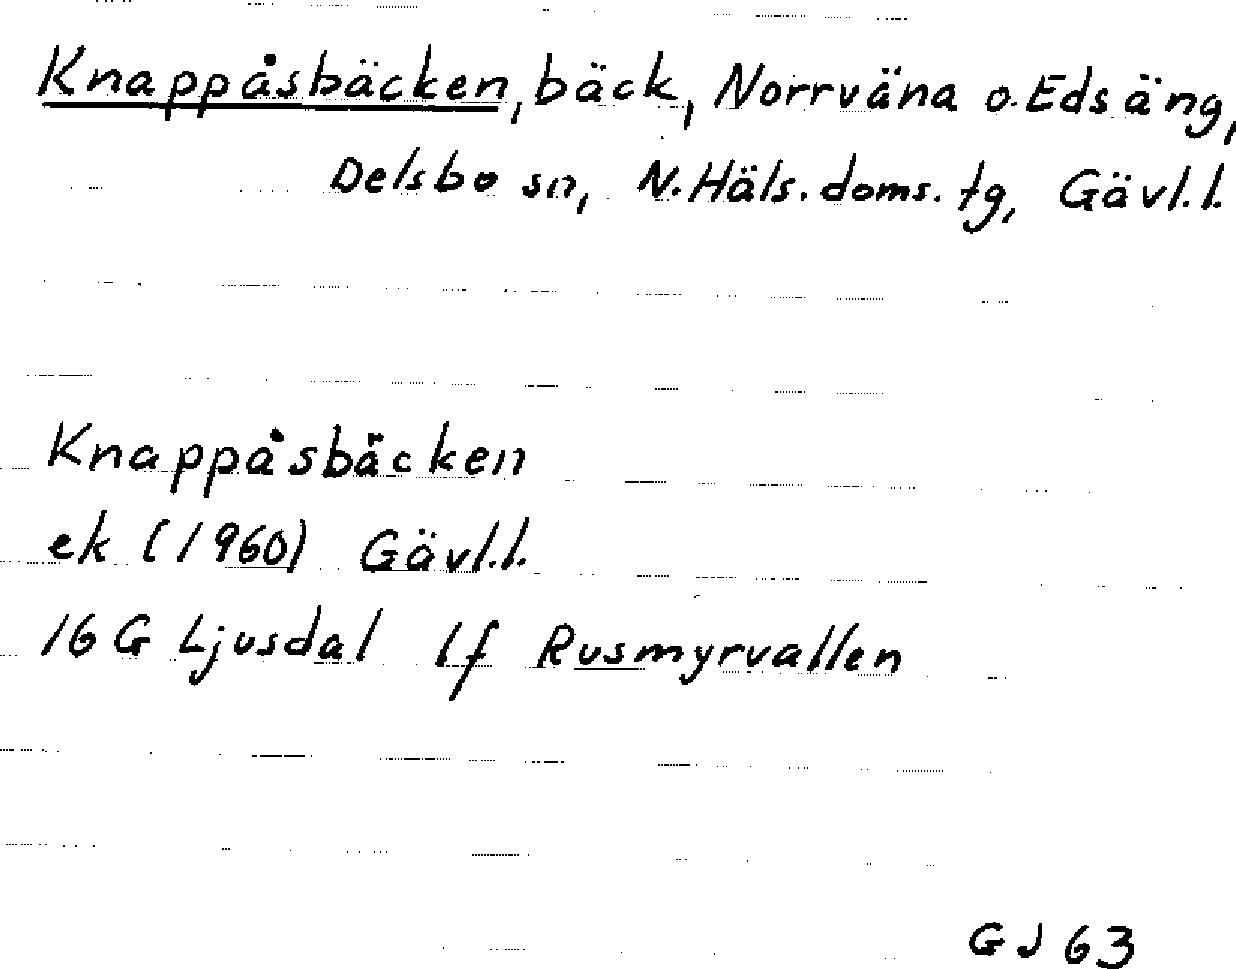 Knappåsbäcken, bäck, Norrväna o. Edsäng,
Delsbo sn, N. Häls. doms. tg, Gävl.l.
Knappåsbäcken
ek (1960) Gävl.l.
16 G Ljusdal lf Rusmyrvallen
GJ 63